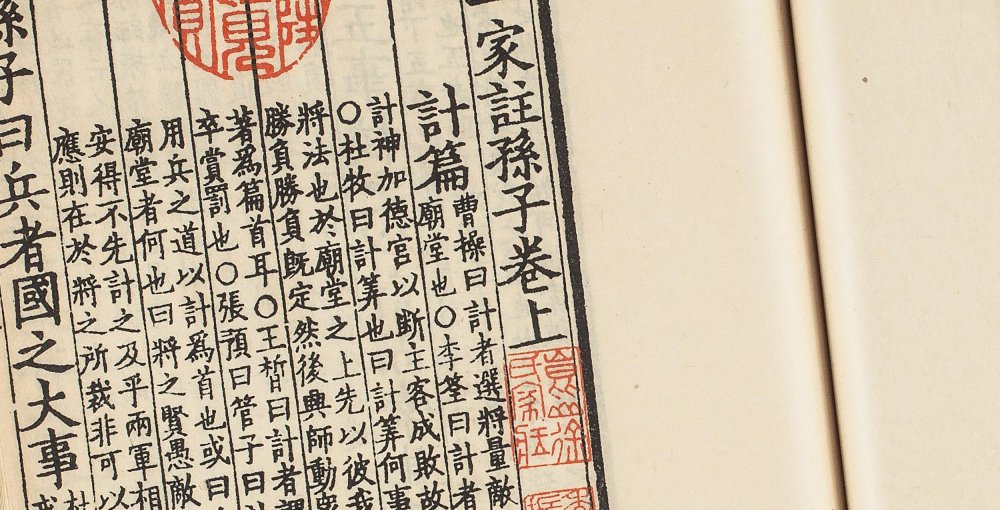 家註孫子卷上
計篇
曹操曰計者選將量敵
廟堂也○李筌曰計者
計神加德宮以斷主客成敗故
○杜牧曰計算也曰計算何事
將法也於廟堂之上先以彼我
勝負勝負既定然後興師動
著爲篇首耳○王晳曰計者謂
卒賞罰也○張預曰管子曰
用兵之道以計爲首也或曰
廟堂者何也曰將之賢愚敵
安得不先計之及乎兩軍相
應則在於將之所裁非可以
孫子曰兵者國之大事
杜